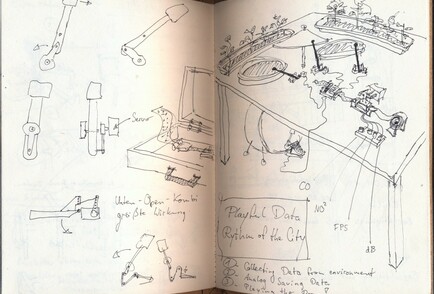 Sensor
Unten-Open-Kombi
größte Wirkung
CO
NO²
EPS
dB
Playful Data
Rythm of the City
1. Collecting Data from environment
2. Analog Saving Data
3. Playing the